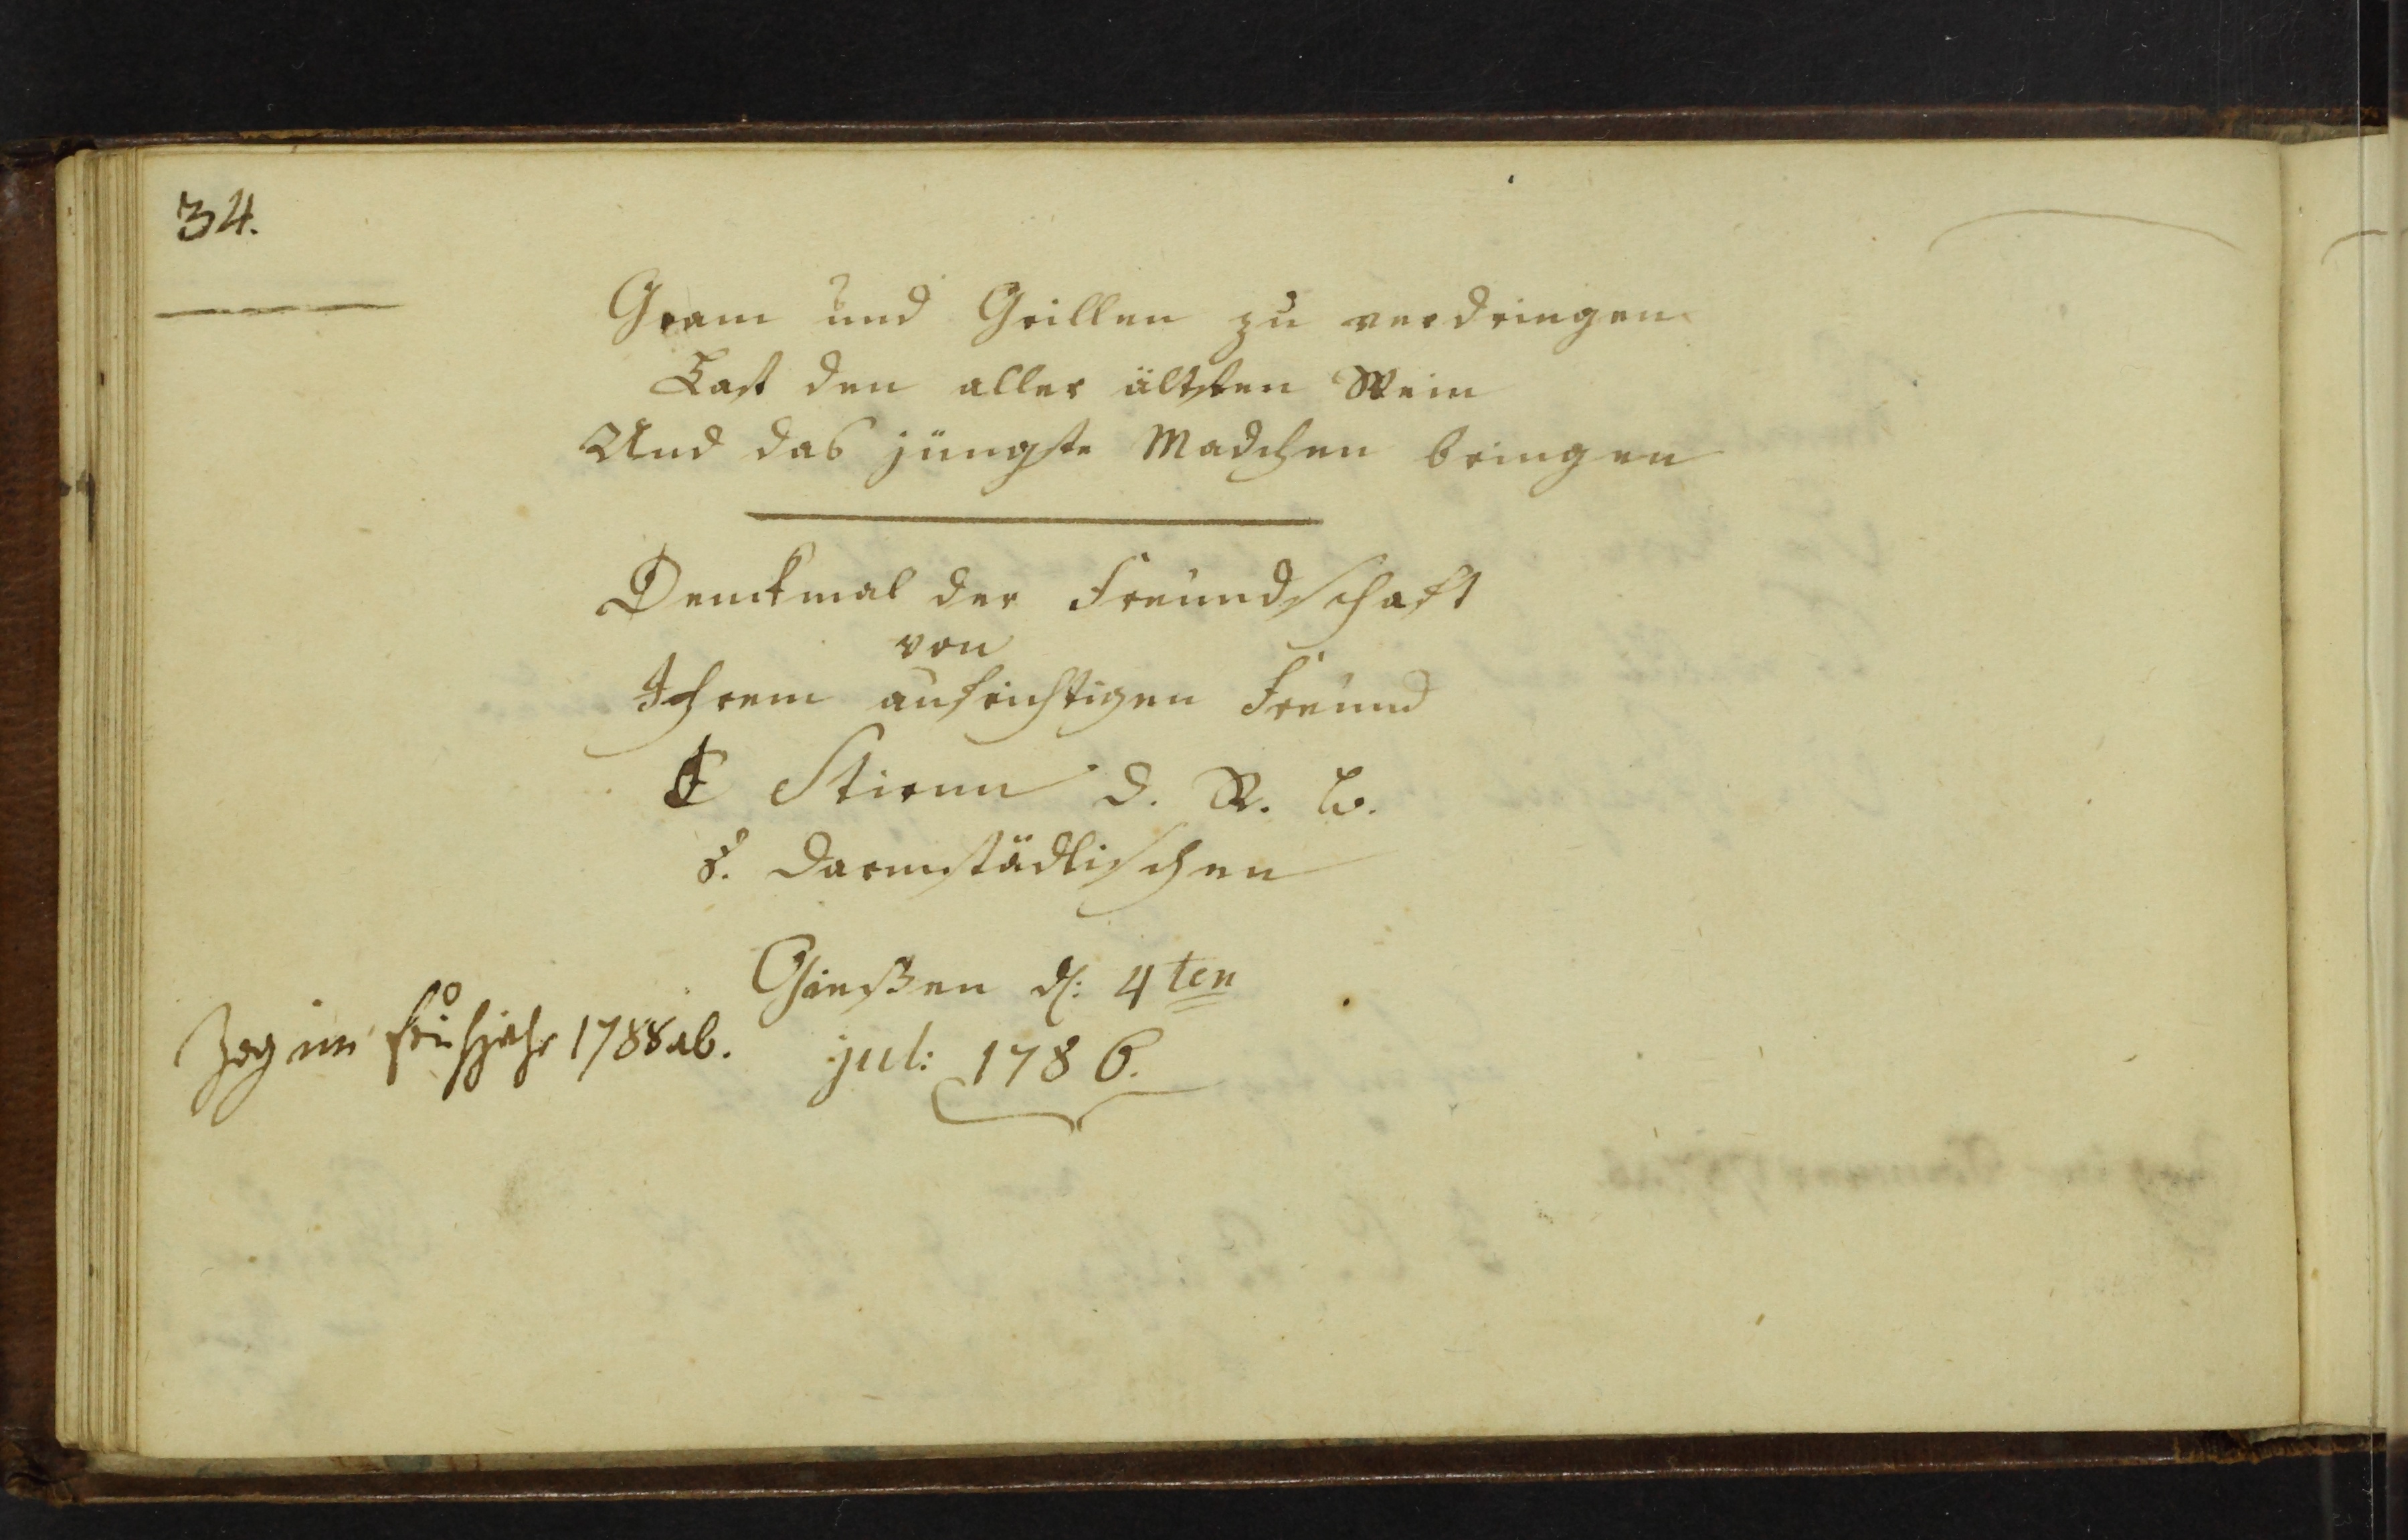 34.
Gram und Grillen zu verdringen
Last den aller ältsten Wein
Und das jüngste Madchen bringen
Denckmal der Freundschaft
von
Ihrem aufrichtigen Freund
Stirnn d. R. b.
Darmstädtischen
Giessen d: 4ten
jul: 1786.
Zog im frühjahr 1788 ab.